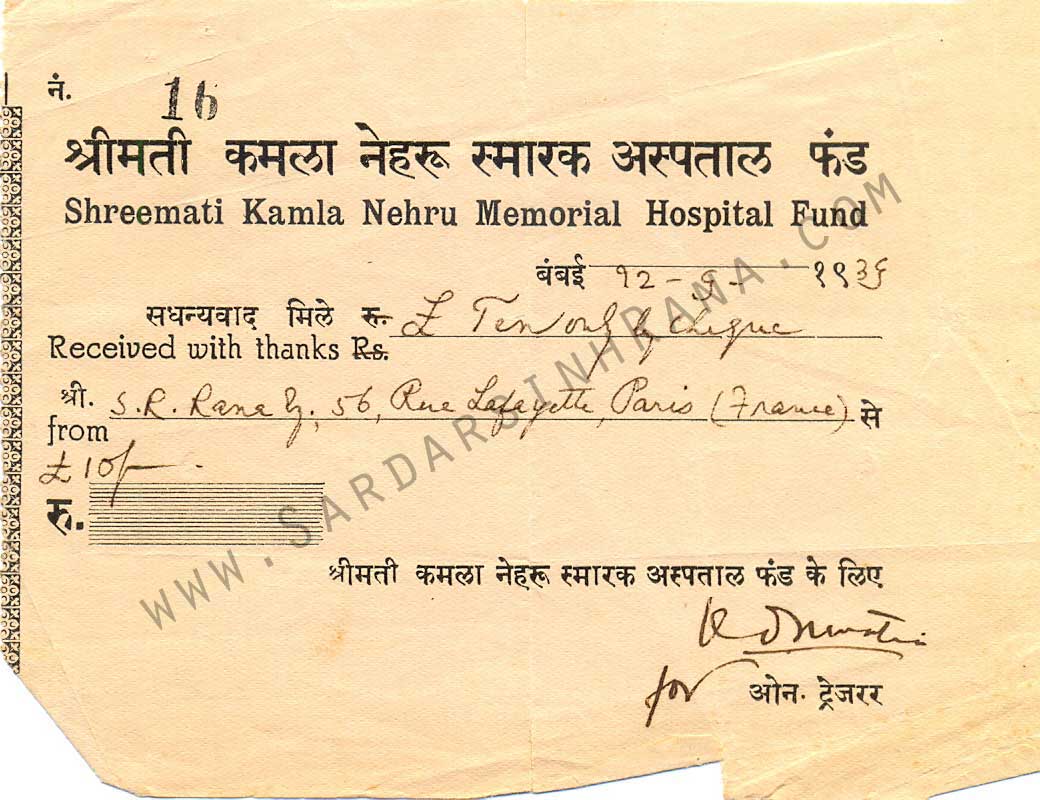 नं. 16
श्रीमती कमला नेहरू स्मारक अस्पताल फंड
Shreemati Kamla Nehru Memorial Hospital Fund
बंबई १२-९- १९३६
सधन्यवाद मिले रु. £ Ten only by cheque
Received with thanks Rs.
श्री. S. R. Rana, 56, Rue Lafayette, Paris (France) से
from
£ 10/-
रु.
श्रीमती कमला नेहरू स्मारक अस्पताल फंड के लिए
for ओन. ट्रेजरर
WWW.SARDARSINHRANA.COM